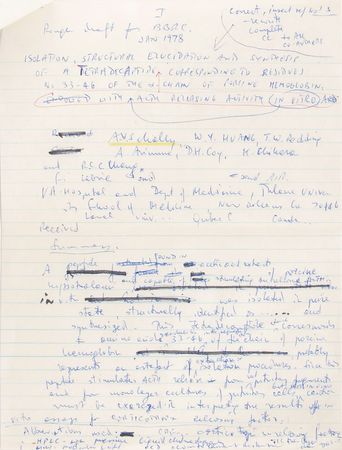 I
Rough draft for BBRC
JAN 1978
Correct, insert ref/no's
rewrite
complete
cc to all
co-authors
ISOLATION, STRUCTURAL ELUCIDATION AND SYNTHESIS
OF A TETRADECAPEPTIDE CORRESPONDING TO RESIDUES
No. 33-46 OF THE α-CHAIN OF PORCINE HEMOGLOBIN
WITH ACTH RELEASING ACTIVITY IN VITRO
A.V. Schally, W.Y. HUANG, T.W. Redding
A. Arimura, D.H. Coy, K. Chihara
and R.C.C. Chang
F. Labrie and
VA Hospital and Dept of Medicine, Tulane Univer.
School of Medicine New Orleans La 70146
Laval Univ... Quebec Canada
Received
Summary.
A peptide FOUND IN extracts of porcine
hypothalami and capable of stimulating
in vitro was isolated in pure
state, structurally identified as ...... and
synthesized. This tetradecapeptide corresponds
to amino acids 33-46 of the α chain of porcine
hemoglobin probably
represents an artefact of isolation procedures, since this
peptide stimulates ACTH release from pituitary fragments
and from monolayer cultures of pituitary cells caution
must be exercised in interpreting the results of in
vitro assays for corticotropin releasing factor.
Abbreviations used: CRF, corticotropin releasing factor
HPLC, high pressure liquid chromatography